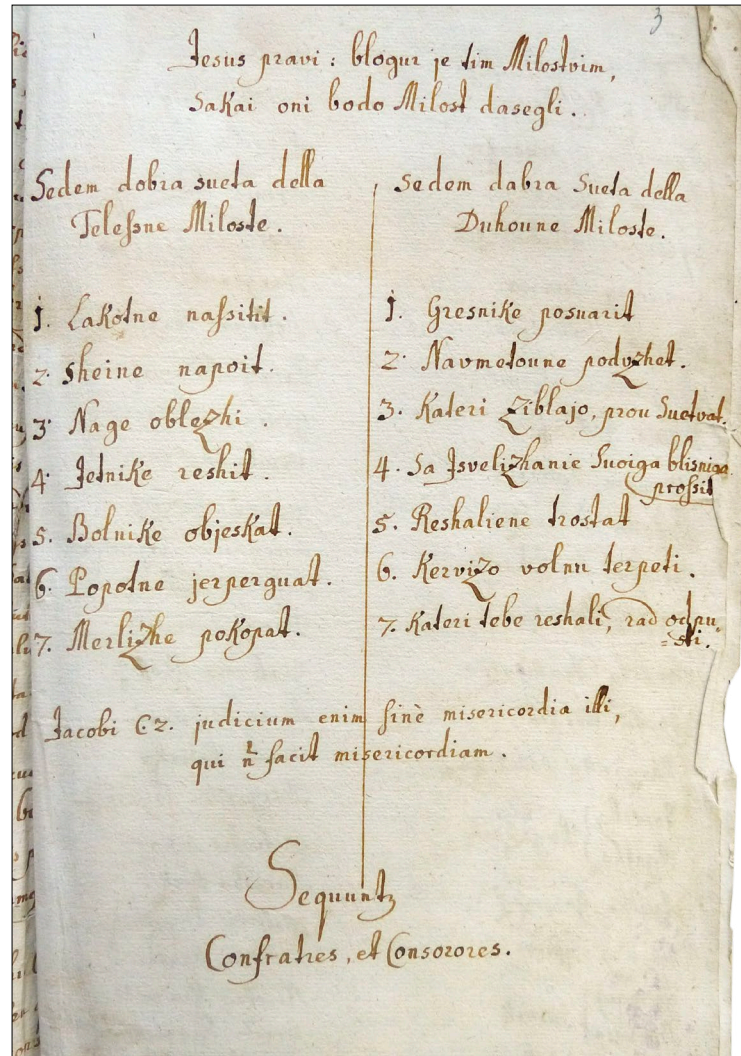 3
Jesus pravi : blogur je tim Milostvim,
Sakai oni bodo Milost dasegli.
Sedem dobra sueta della
Telesne Miloste.
1. Lakotne nassitit.
2. sheine napoit.
3. Nage oblezhi.
4. Jetnike reshit.
5. Bolnike objeskat.
6. Popotne jerperguat.
7. Merlizhe pokopat.
Sedem dabra Sueta della
Duhoune Miloste.
1. Gresnike posuarit
2. Navmetoune podvzhet.
3. Kateri ziblajo, prou Suetvat.
4. Sa Isvelizhanie Suoiga blisniga
prossit
5. Reshaliene trostat
6. Kervizo volnu terpeti.
7. Kateri tebe reshali, rad odpu=
=sti.
Jacobi C2. judicium enim sinè misericordia illi,
qui n̄ facit misericordiam.
Sequuntz
Confratres, et Consorores.